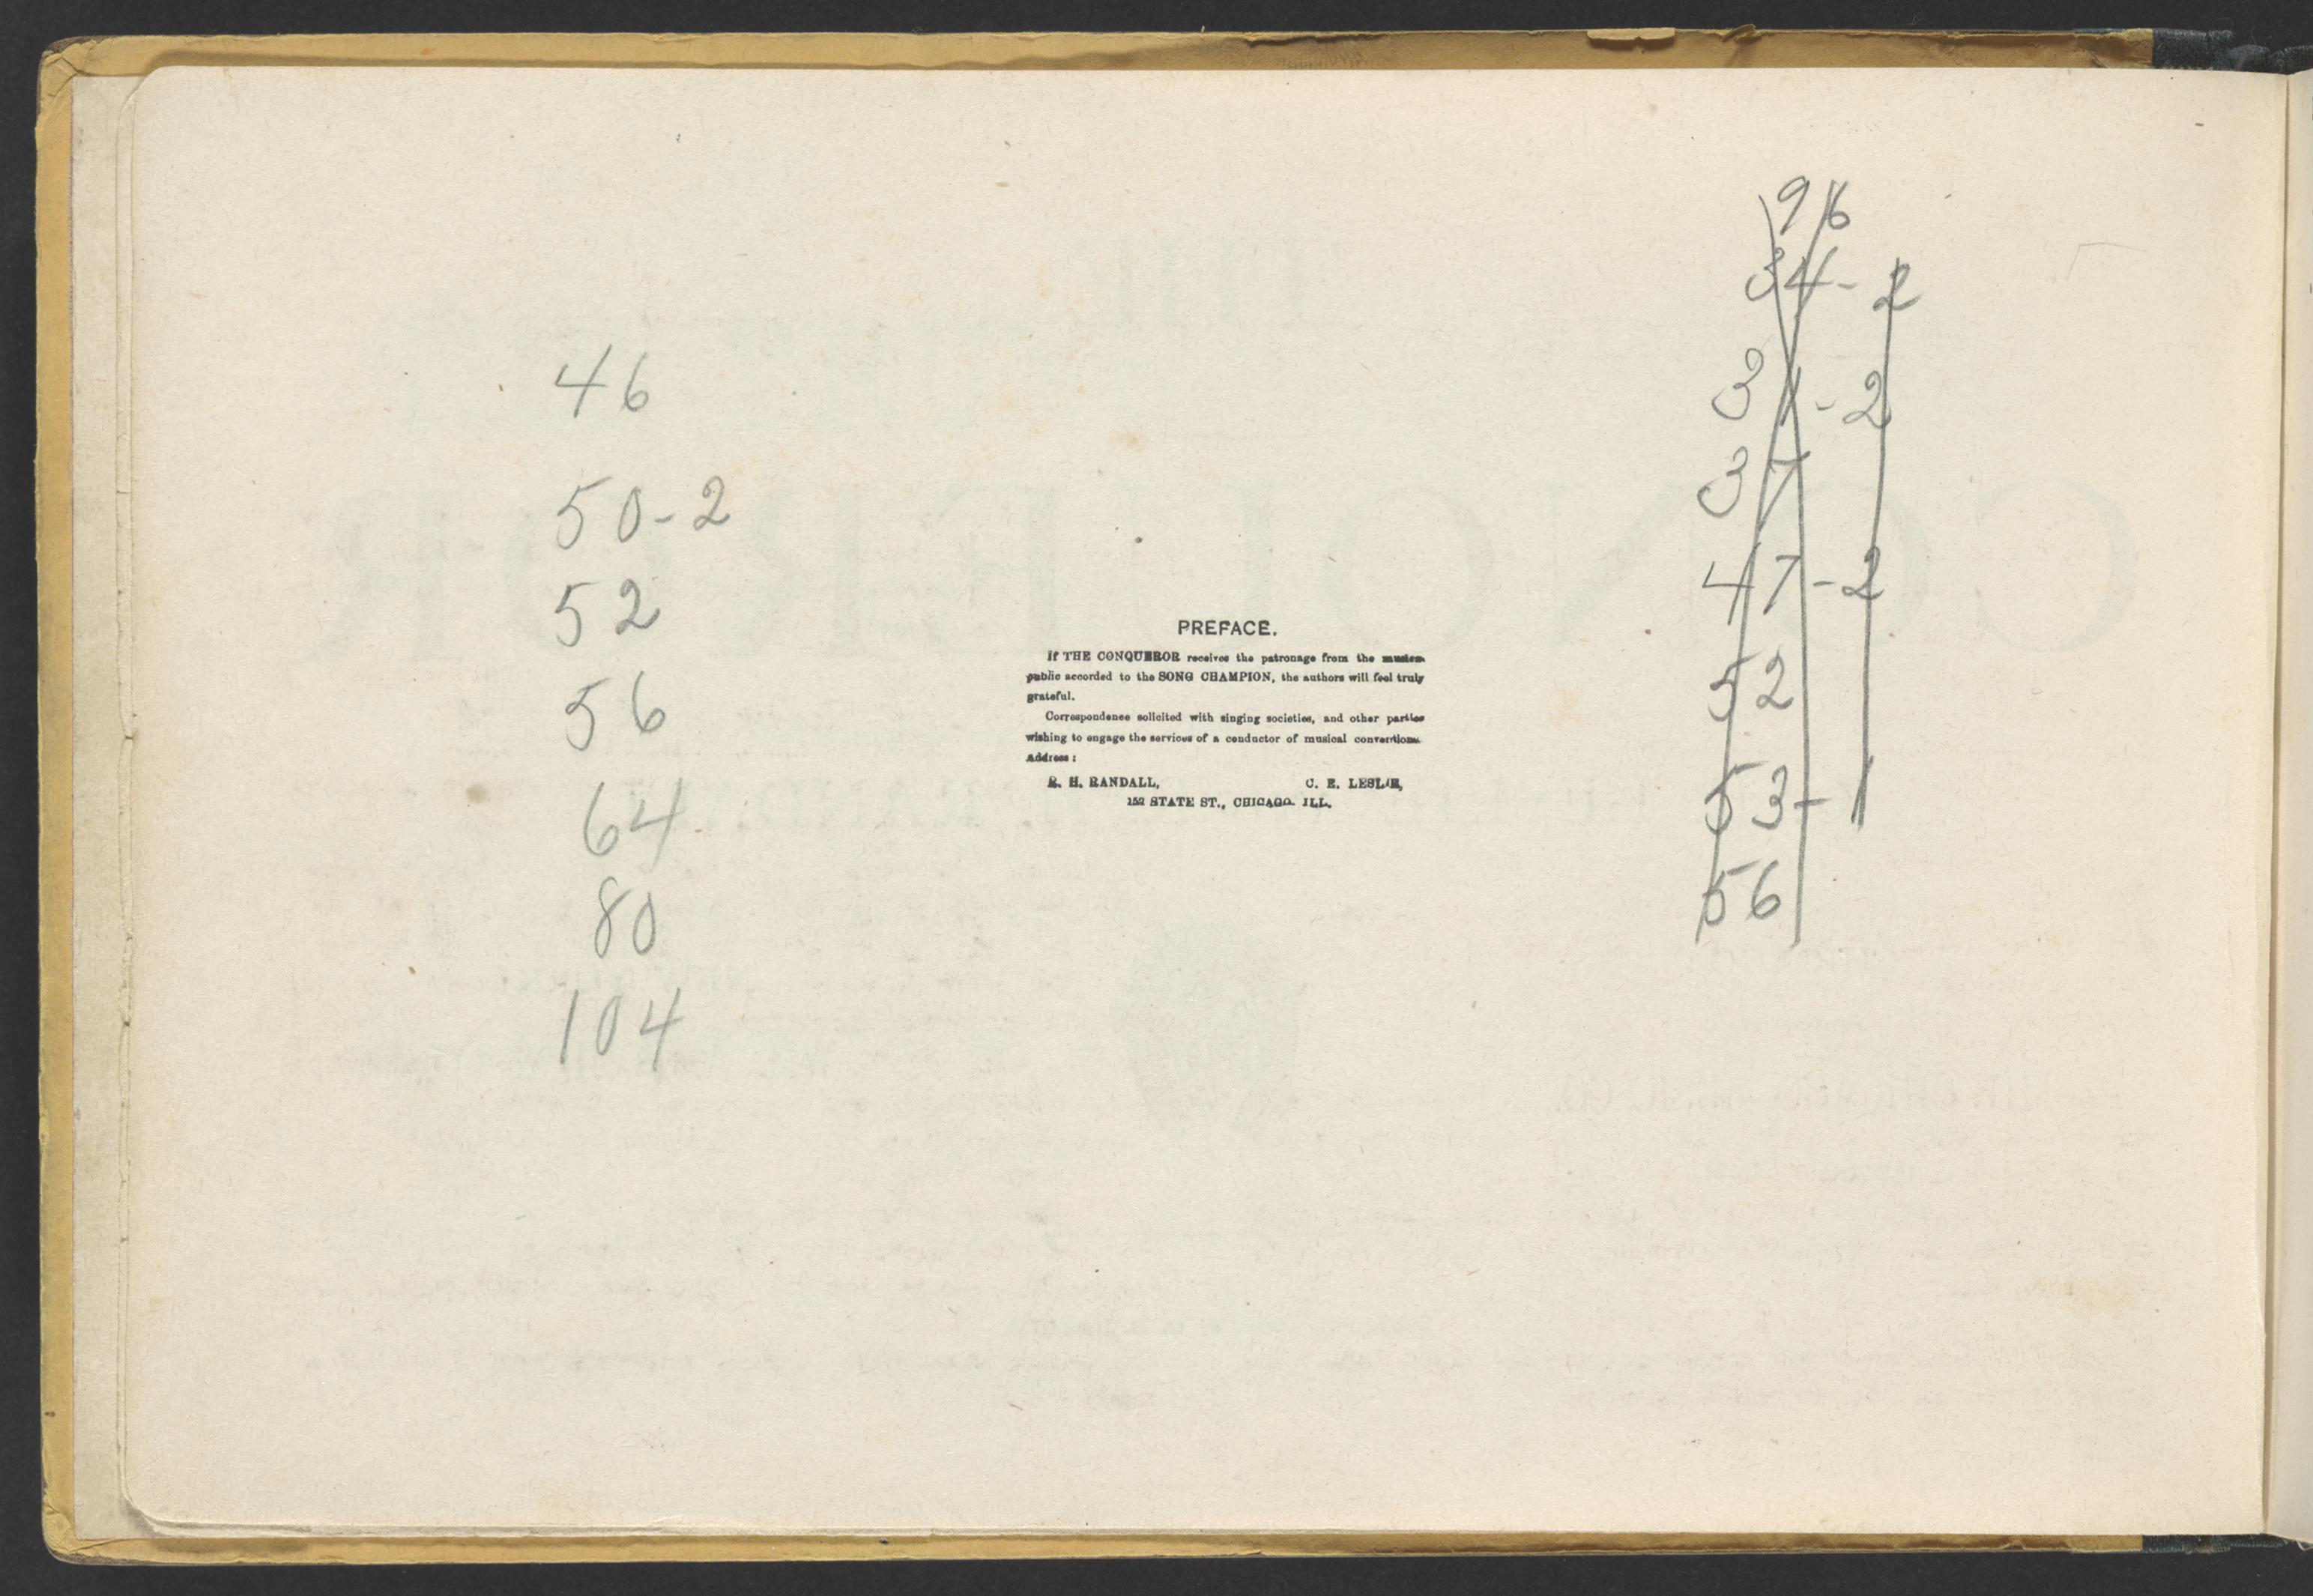 46
50-2
52
56
64
80
104
PREFACE.
If THE CONQUEROR receives the patronage from the
public accorded to the SONG CHAMPION, the authors will feel truly
grateful.
Correspondence solicited with singing societies, and other parties
wishing to engage the services of a conductor of musical conventions.
Address:
R. H. RANDALL, C. E. LESLIE,
152 STATE ST., CHICAGO. ILL.
96
34-2
31-2
37
47-2
52
53-1
56